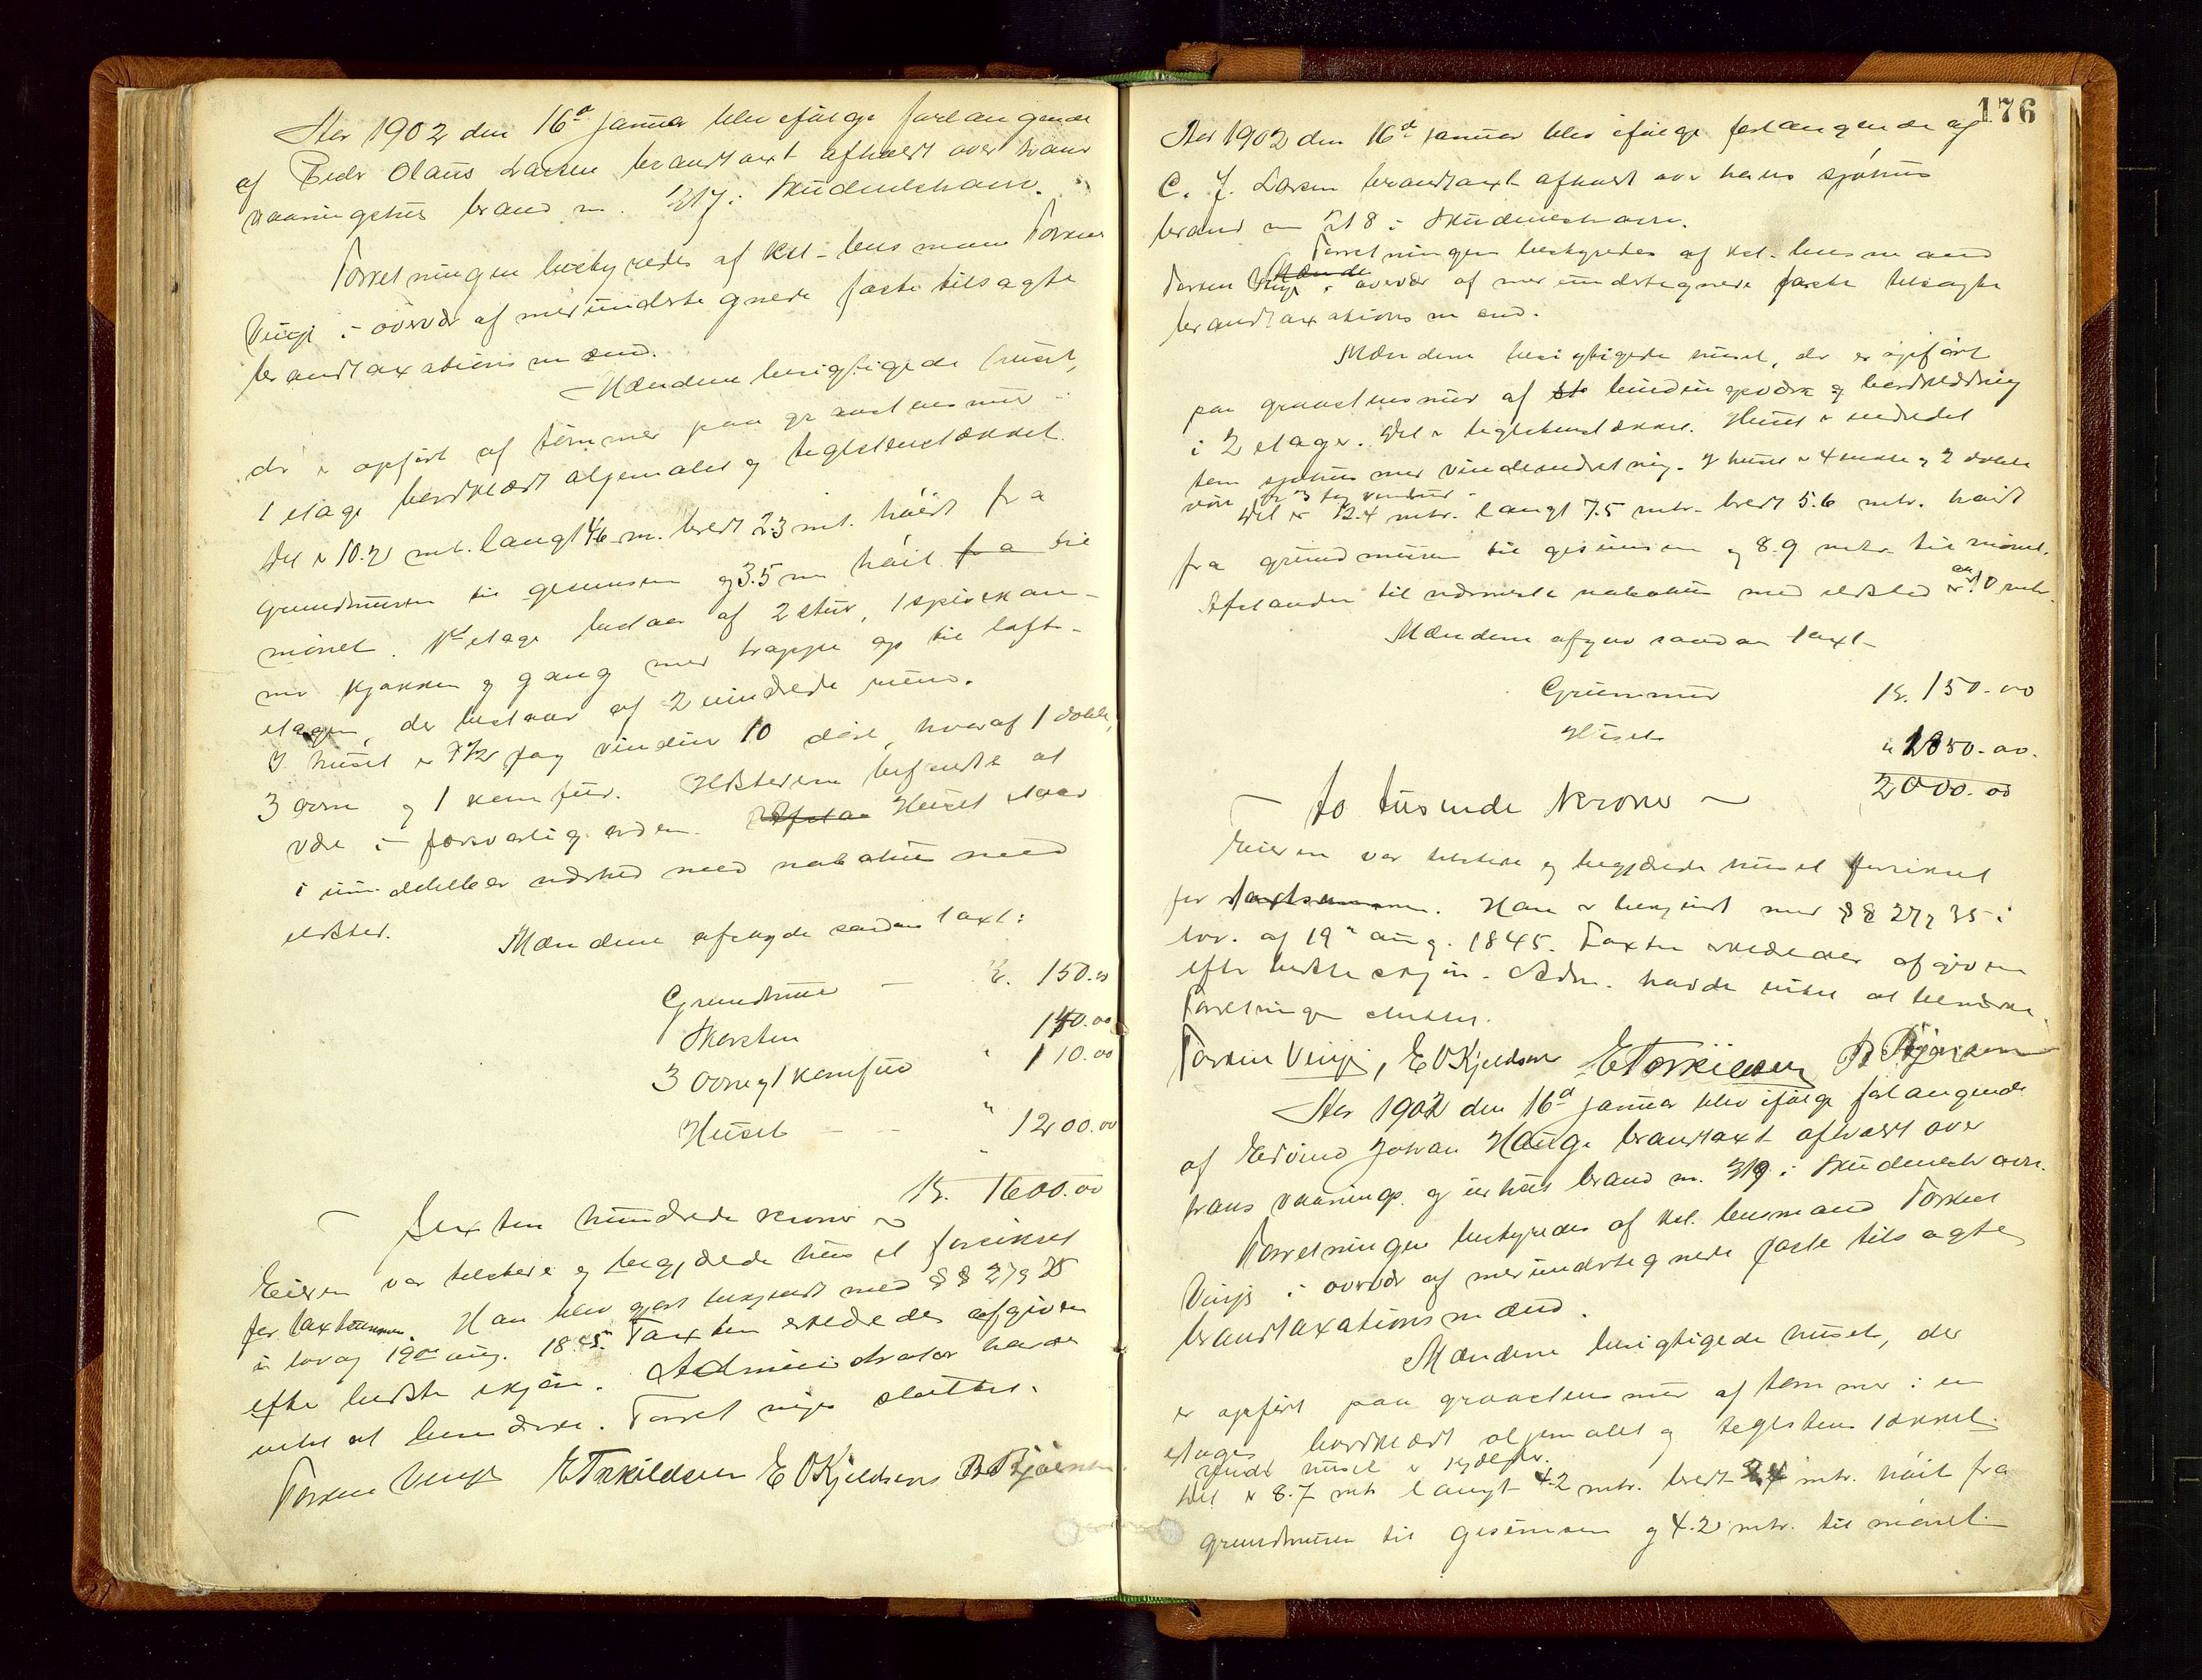 Aar 1902 den 16d januar blev ifølge forlangende
af Peder Olaus Larsen brandtaxt afholdt over hans
vaaningshus brand n. 217 i Skudeneshavn.
Forretningen bestyredes af kst. lensmann Torkel
Vinje i overvær af medundertegnede faste tilsagte
brandtaxationsmænd.
Mændene besigtigede huset,
der er opført af tømmer paa graastensmur i
1 etage bordklædt oljemalet og teglstenstækket.
Det er 10.2 mt. langt 4.6 m. bredt 2.3 mt. høidt fra
grundmuren til gesimsen og 3.5 m høit fra til
mønet. 1ste etage bestaar af 2 stuer, 1 spisekam-
mer kjøkken og gang med trappe op til lofts-
etagen, der bestaar af 2 uindrede rum.
I huset er 7 1/2 fag vinduer 10 døre, hvoraf 1 dobbel,
3 ovne og 1 komfur. Ildstederne befandtes at
være i forsvarlig orden. Afstan Huset staar
i umiddelbar nærhed med nabohus med
ildsted.
Mændene afsagde saadan taxt:
Grundmur — Kr. 150.00
Skorsten 140.00
3 ovne og 1 komfur " 110.00
Huset — — " 1200.00
Kr. 1600.00
— Sexten hundrede kroner ~
Eieren var tilstede og begjærede huset forsikret
for taxtsummen. Han blev gjort bekjendt med §§ 27 og 35
i lov af 19de aug. 1845. Taxten erklæredes afgiven
efter bedste skjøn. Administrator havde
intet at bemærke. Forretningen sluttet.
Torkel Vinje E Torkildsen E O Kjeldsen B Bjørnsen
176
Aar 1902 den 16d januar blev ifølge forlangende af
C. J. Larsen brandtaxt afholdt over hans sjøhus
brand n 218 i Skudeneshavn.
Forretningen bestyredes af kst. lensmand
Torkel Vinje i overvær af medundertegnede faste tilsagte
brandtaxationsmænd.
Mændene besigtigede huset, der er opført
paa graastensmur af bindingsværk og bordklædning
i 2 etager. Det er teglstenstækket. Huset er indredet
som sjøhus med vindeindretning. I huset er 4 enkle og 2 doble
døre og 3 fag vinduer.
Det er 12.4 mtr. langt 7.5 mtr. bredt 5.6 mtr. høidt
fra grundmuren til gesimsen og 8.9 mtr. til mønet.
Afstanden til nærmeste nabohus med ildsted er ca 10 mtr.
Mændene afgav saadan taxt
Grunmur Kr. 150.00
Huset " 1850.00.
2000.00
— to tusende kroner ~
Eieren var tilstede og begjærede huset forsikret
for taxtsummen. Han er bekjendt med §§ 27 og 35 i
lov. af 19de aug. 1845. Taxten erklæredes afgiven
efter bedste skjøn. Adm. havde intet at bemærke.
Forretningen sluttet.
Torkel Vinje, E O Kjeldsen E Torkildsen B Bjørnsen
Aar 1902 den 16d januar blev ifølge forlangende
af Edvind Johan Hauge brandtaxt afholdt over
hans vaanings og uthus brand n. 319 i Skudeneshavn.
Forretningen bestyredes af kst. lensmand Torkel
Vinje i overvær af medundertegnede faste tilsagte
brandtaxationsmænd.
Mændene besigtigede huset, der
er opført paa graastensmur af tømmer i en
etage bordklædt oljemalet og teglstenstækket.
Under huset er kjælder.
Det er 8.7 mtr langt 4.2 mtr. bredt 2.4 mtr. høit fra
grundmuren til gesimsen og 4.2 mtr. til mønet.